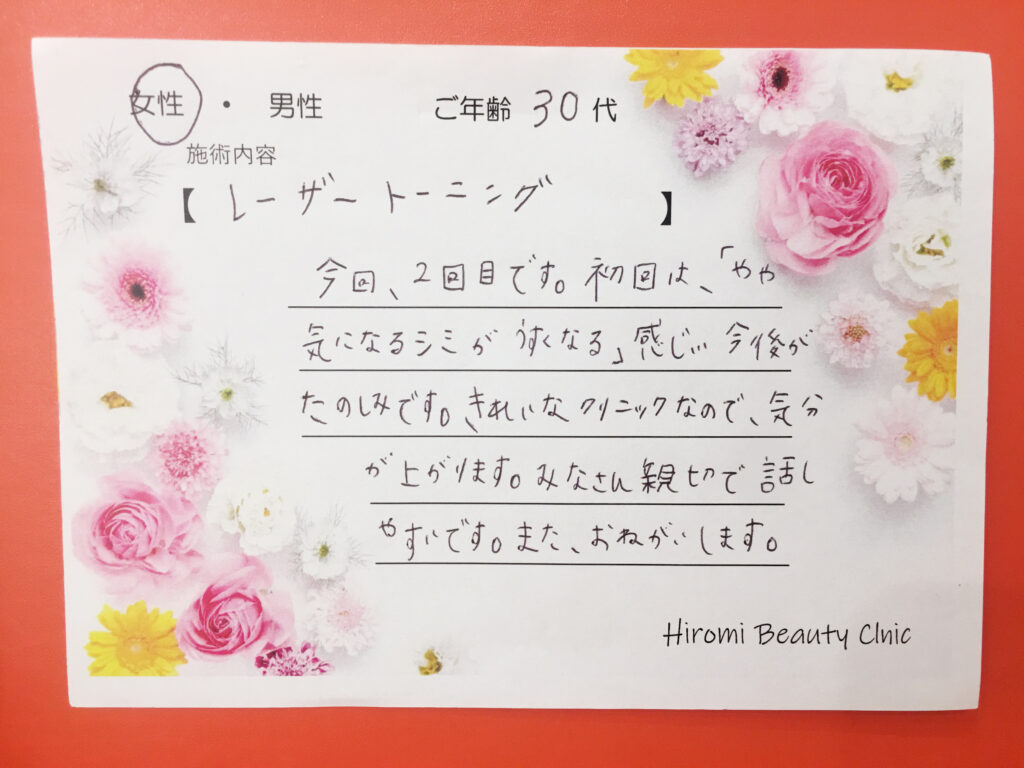 女性 ・ 男性 ご年齢 30 代
施術内容
【 レーザートーニング 】
今回、2回目です。初回は、「やや
気になるシミが うすくなる」感じ… 今後が
たのしみです。きれいなクリニックなので、気分
が上がります。みなさん親切で話し
やすいです。また、おねがいします。
Hiromi Beauty Clnic